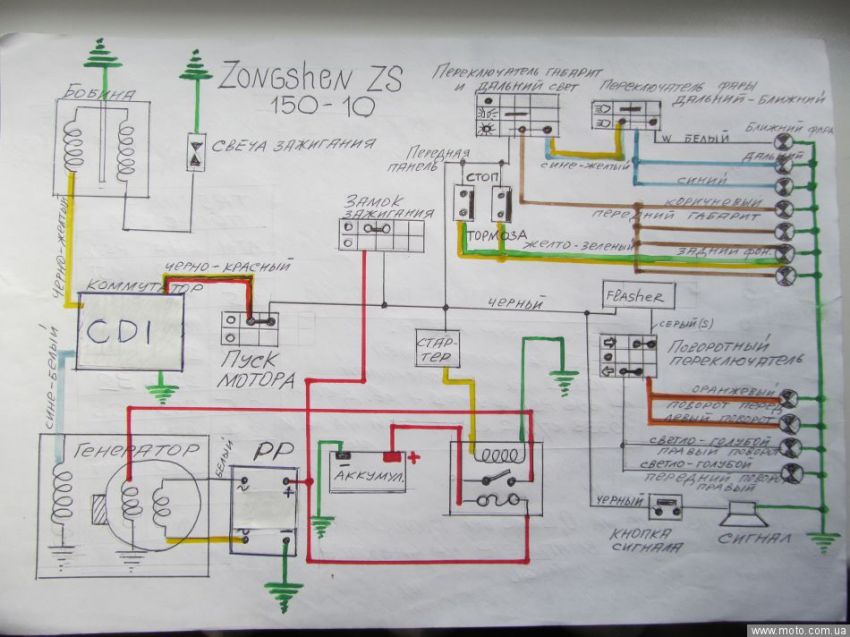 Zongshen ZS
150-10
БОБИНА
СВЕЧА ЗАЖИГАНИЯ
ПЕРЕКЛЮЧАТЕЛЬ ГАБАРИТ
И ДАЛЬНИЙ СВЕТ
ПЕРЕКЛЮЧАТЕЛЬ ФАРЫ
ДАЛЬНИЙ-БЛИЖНИЙ
W БЕЛЫЙ
БЛИЖНИЙ ФАРА
ДАЛЬНИЙ
СИНЕ-ЖЕЛТЫЙ
СИНИЙ
ПЕРЕДНЯЯ
ПАНЕЛЬ
СТОП
ТОРМОЗА
КОРИЧНЕВЫЙ
ПЕРЕДНИЙ ГАБАРИТ
ЖЕЛТО-ЗЕЛЕНЫЙ
ЗАДНИЙ ФОН.
ЗАМОК
ЗАЖИГАНИЯ
ЧЕРНО-ЖЕЛТЫЙ
ЧЕРНО-КРАСНЫЙ
КОММУТАТОР
CDI
ПУСК
МОТОРА
ЧЕРНЫЙ
Flasher
СЕРЫЙ(S)
ПОВОРОТНЫЙ
ПЕРЕКЛЮЧАТЕЛЬ
СТАР-
ТЕР
СИНЕ-БЕЛЫЙ
ОРАНЖЕВЫЙ
ПОВОРОТ ПЕРЕД
ЛЕВЫЙ ПОВОРОТ
СВЕТЛО-ГОЛУБОЙ
ПРАВЫЙ ПОВОРО
СВЕТЛО-ГОЛУБОЙ
ПЕРЕДНИЙ ПОВОРО
ПРАВЫЙ
ГЕНЕРАТОР
БЕЛЫЙ
РР
~ +
~ -
- +
АККУМУЛ.
ЧЕРНЫЙ
КНОПКА
СИГНАЛА
СИГНАЛ
www.moto.com.ua